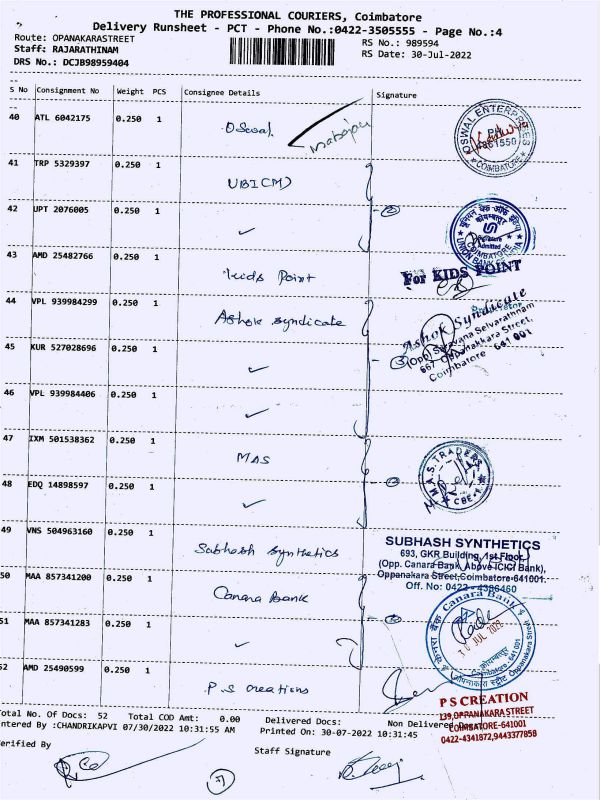 THE PROFESSIONAL COURIERS, Coimbatore
Delivery Runsheet - PCT - Phone No.:0422-3505555 - Page No.:4
Route: OPANAKARASTREET
RS No.: 989594
Staff: RAJARATHINAM
RS Date: 30-Jul-2022
DRS No.: DCJB98959404
S No Consignment No Weight PCS Consignee Details Signature
40 ATL 6042175 0.250 1 Oswal
OSWAL ENTERPRISES
COIMBATORE
41 TRP 5329397 0.250 1 UBI(M)
42 UPT 2076005 0.250 1 ✓ 2
यूनियन बैंक ऑफ इंडिया
कोयम्बत्तूर
COIMBATORE
UNION BANK OF INDIA
43 AMD 25482766 0.250 1 Kids Point
For KIDS POINT
44 VPL 939984299 0.250 1 Ashok Syndicate
Ashok Syndicate
(Opp) Saravana Selvarathnam
667, Oppanakkara Street,
Coimbatore - 641 001
45 KUR 527028696 0.250 1 ✓ 3
46 VPL 939984406 0.250 1 ✓
47 IXM 501538362 0.250 1 MAS
M.A.S. TRADERS
CBE-1
48 EDQ 14898597 0.250 1 ✓ 2
49 VNS 504963160 0.250 1 Subhash Synthetics
SUBHASH SYNTHETICS
693, GKR Building, 1st Floor
(Opp. Canara Bank, Above ICICI Bank),
Oppanakara Street, Coimbatore-641001.
Off. No: 0422 - 4386460
50 MAA 857341200 0.250 1 Canara Bank
Canara Bank
30 JUL 2022
कोयम्बत्तूर
Coimbatore-641001
Oppanakara Street
51 MAA 857341283 0.250 1 ✓ 2
52 AMD 25490599 0.250 1 P.S creations
P S CREATION
139, OPPANAKARA STREET
COIMBATORE-641001
0422-4341872, 9443377858
Total No. Of Docs: 52 Total COD Amt: 0.00 Delivered Docs: Non Delivered Docs:
Entered By :CHANDRIKAPVI 07/30/2022 10:31:55 AM Printed On: 30-07-2022 10:31:45
Verified By
Staff Signature
7